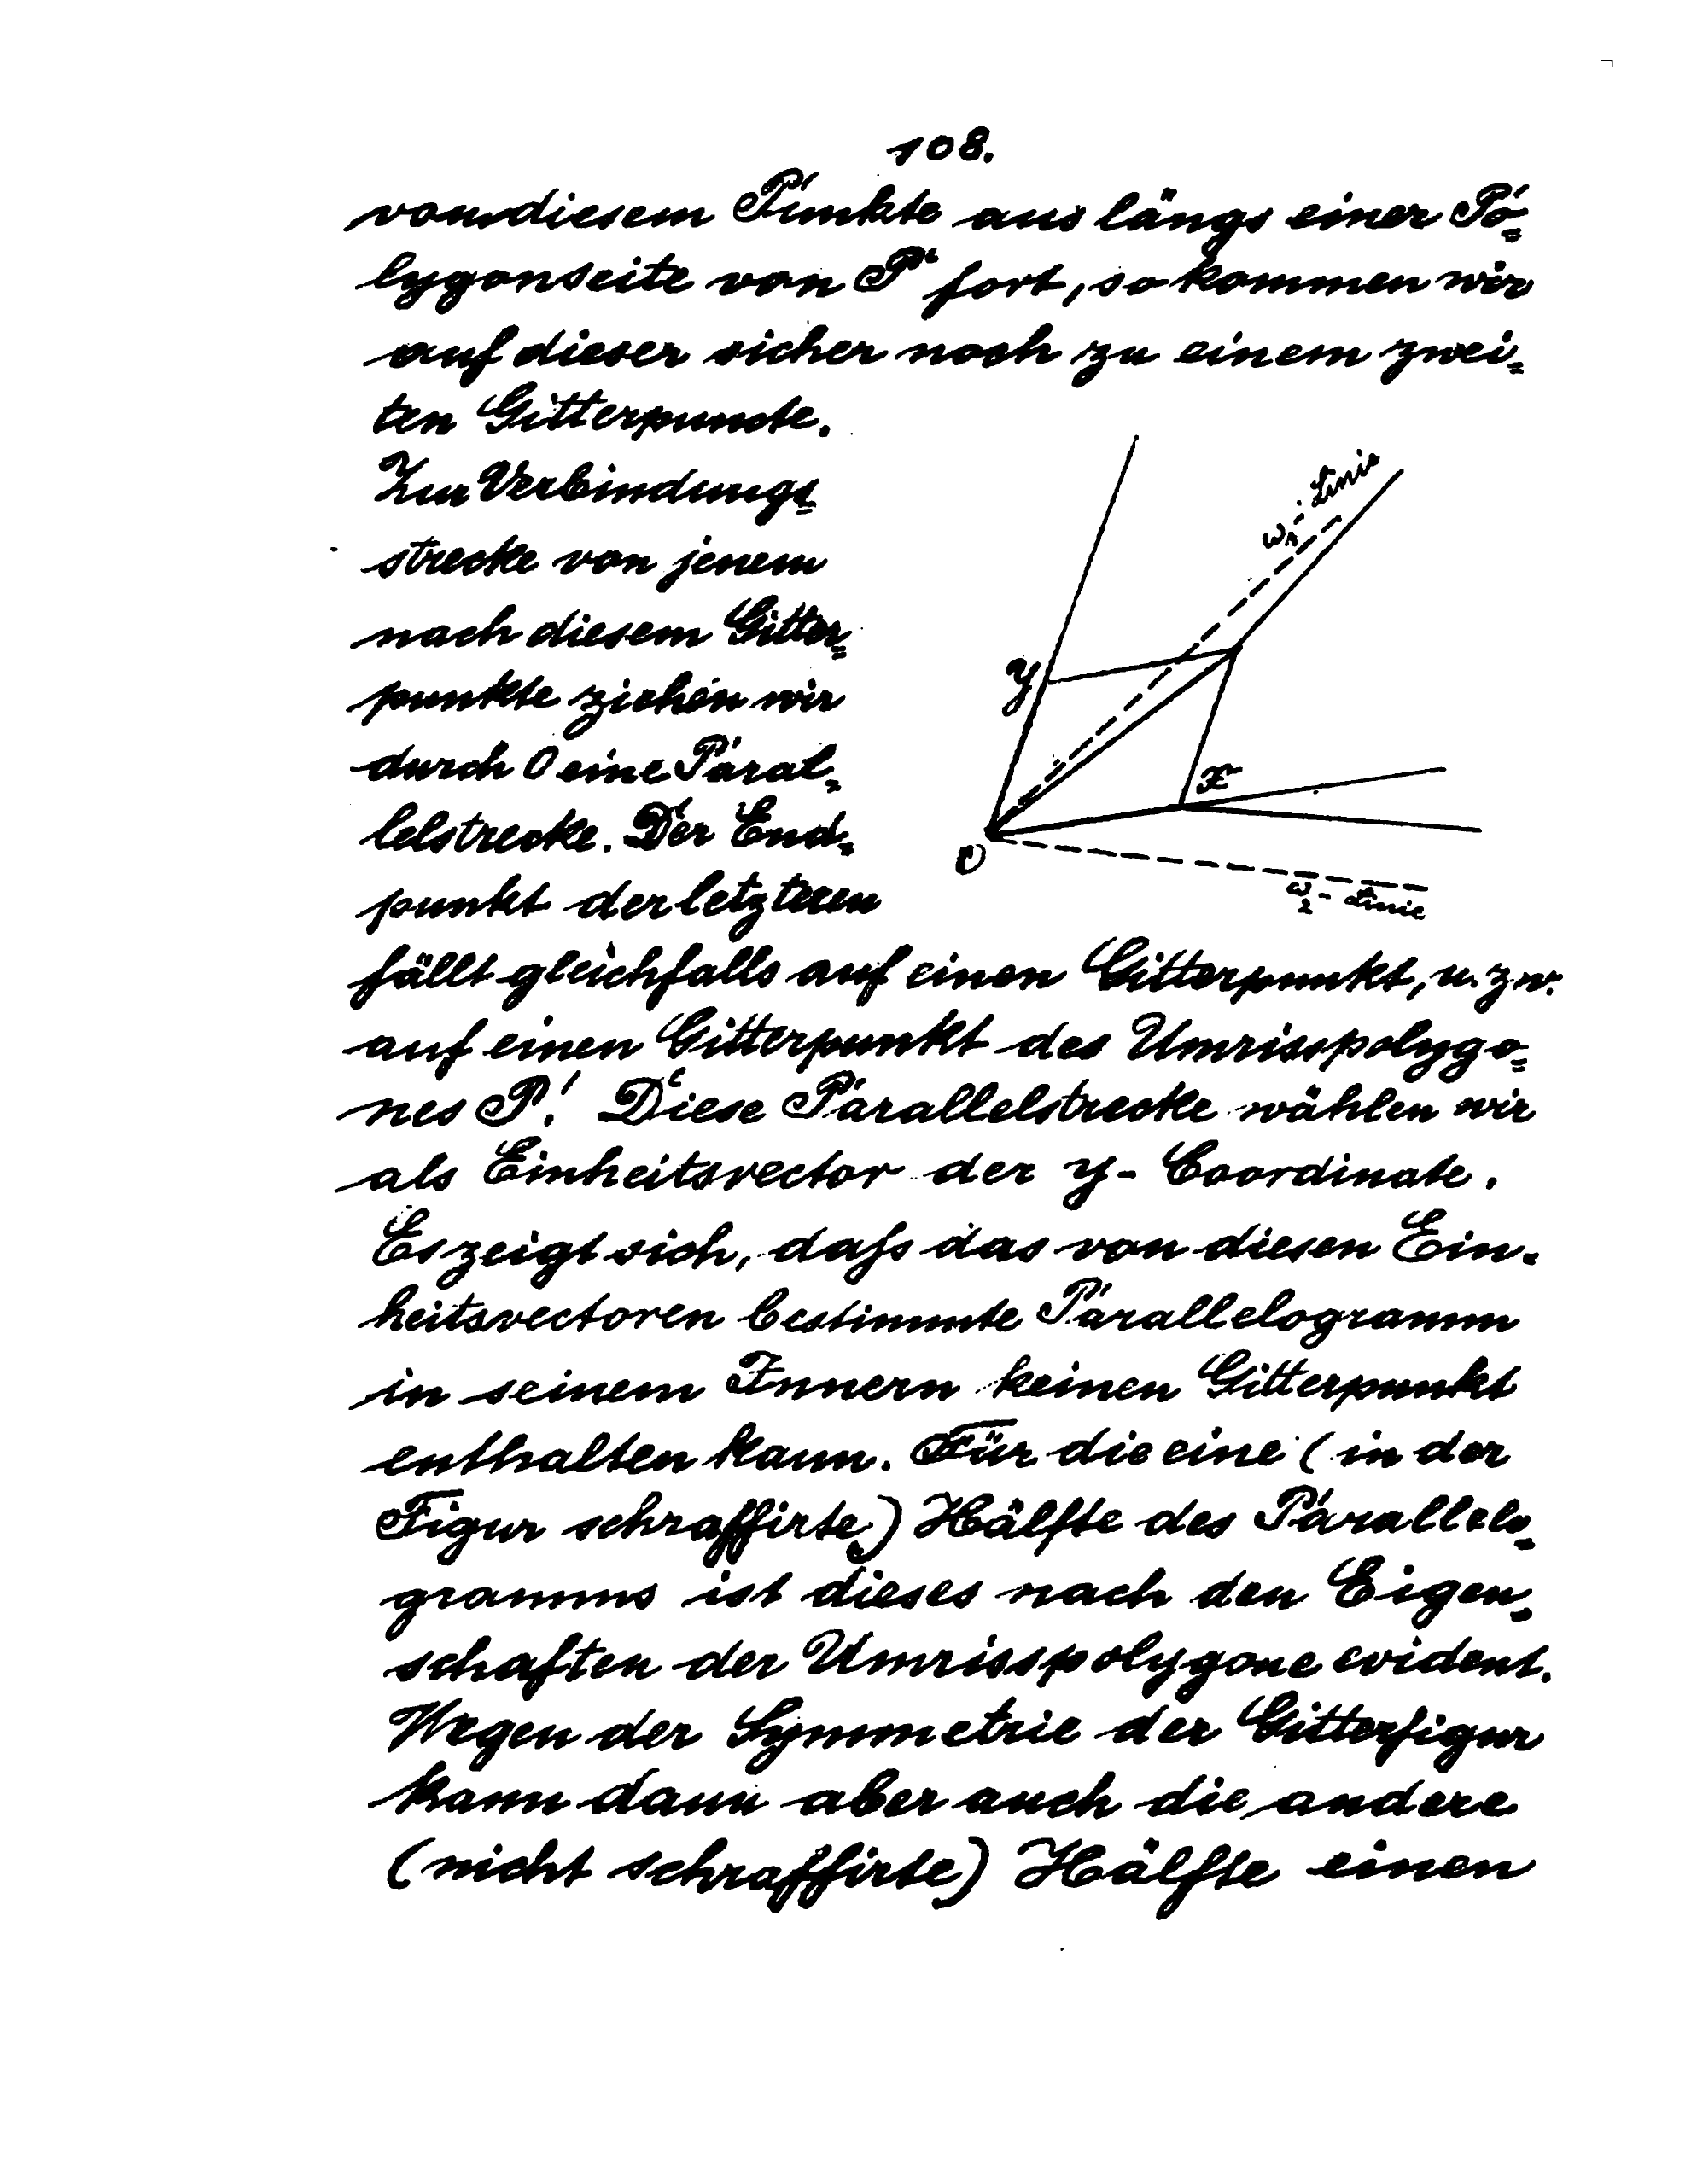 108.
von diesem Punkte aus längs einer Po=
lygonseite von P' fort, so kommen wir
auf dieser sicher noch zu einem zwei=
ten Gitterpuncte.
Zur Verbindungs=
strecke von jenem
nach diesem Gitter=
punkte ziehen wir
durch O eine Paral=
lelstrecke. Der End=
punkt der letzteren
fällt gleichfalls auf einen Gitterpunkt, u. zw.
auf einen Gitterpunkt des Umrisspolygo=
nes P'. Diese Parallelstrecke wählen wir
als Einheitsvector der y-Coordinate.
Es zeigt sich, daſs das von diesen Ein=
heitsvectoren bestimmte Parallelogramm
in seinem Innern keinen Gitterpunkt
enthalten kann. Für die eine (in der
Figur schraffirte) Hälfte des Parallelo=
gramms ist dieses nach den Eigen=
schaften der Umrisspolygone evident.
Wegen der Symmetrie der Gitterfigur
kann dann aber auch die andere
(nicht schraffirte) Hälfte einen
ω₁-Linie
y
x
O
ω₂-Linie